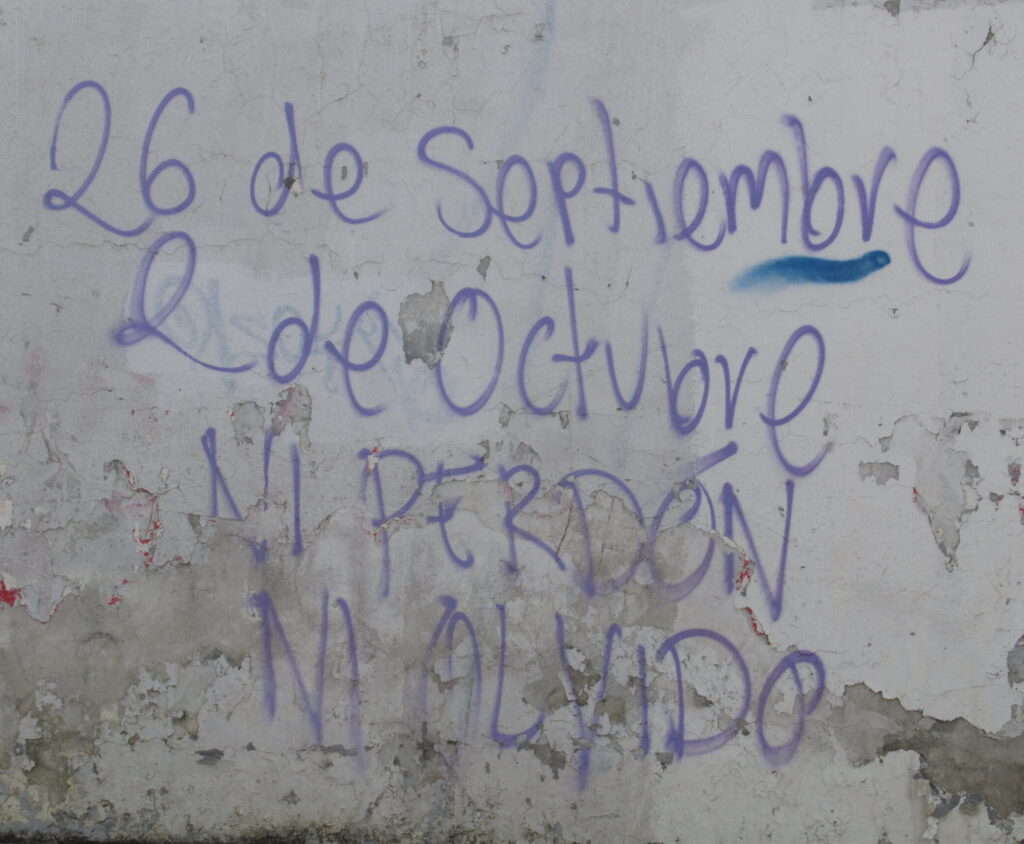 26 de Septiembre
2 de Octubre
NI PERDÓN
NI ALVIDO